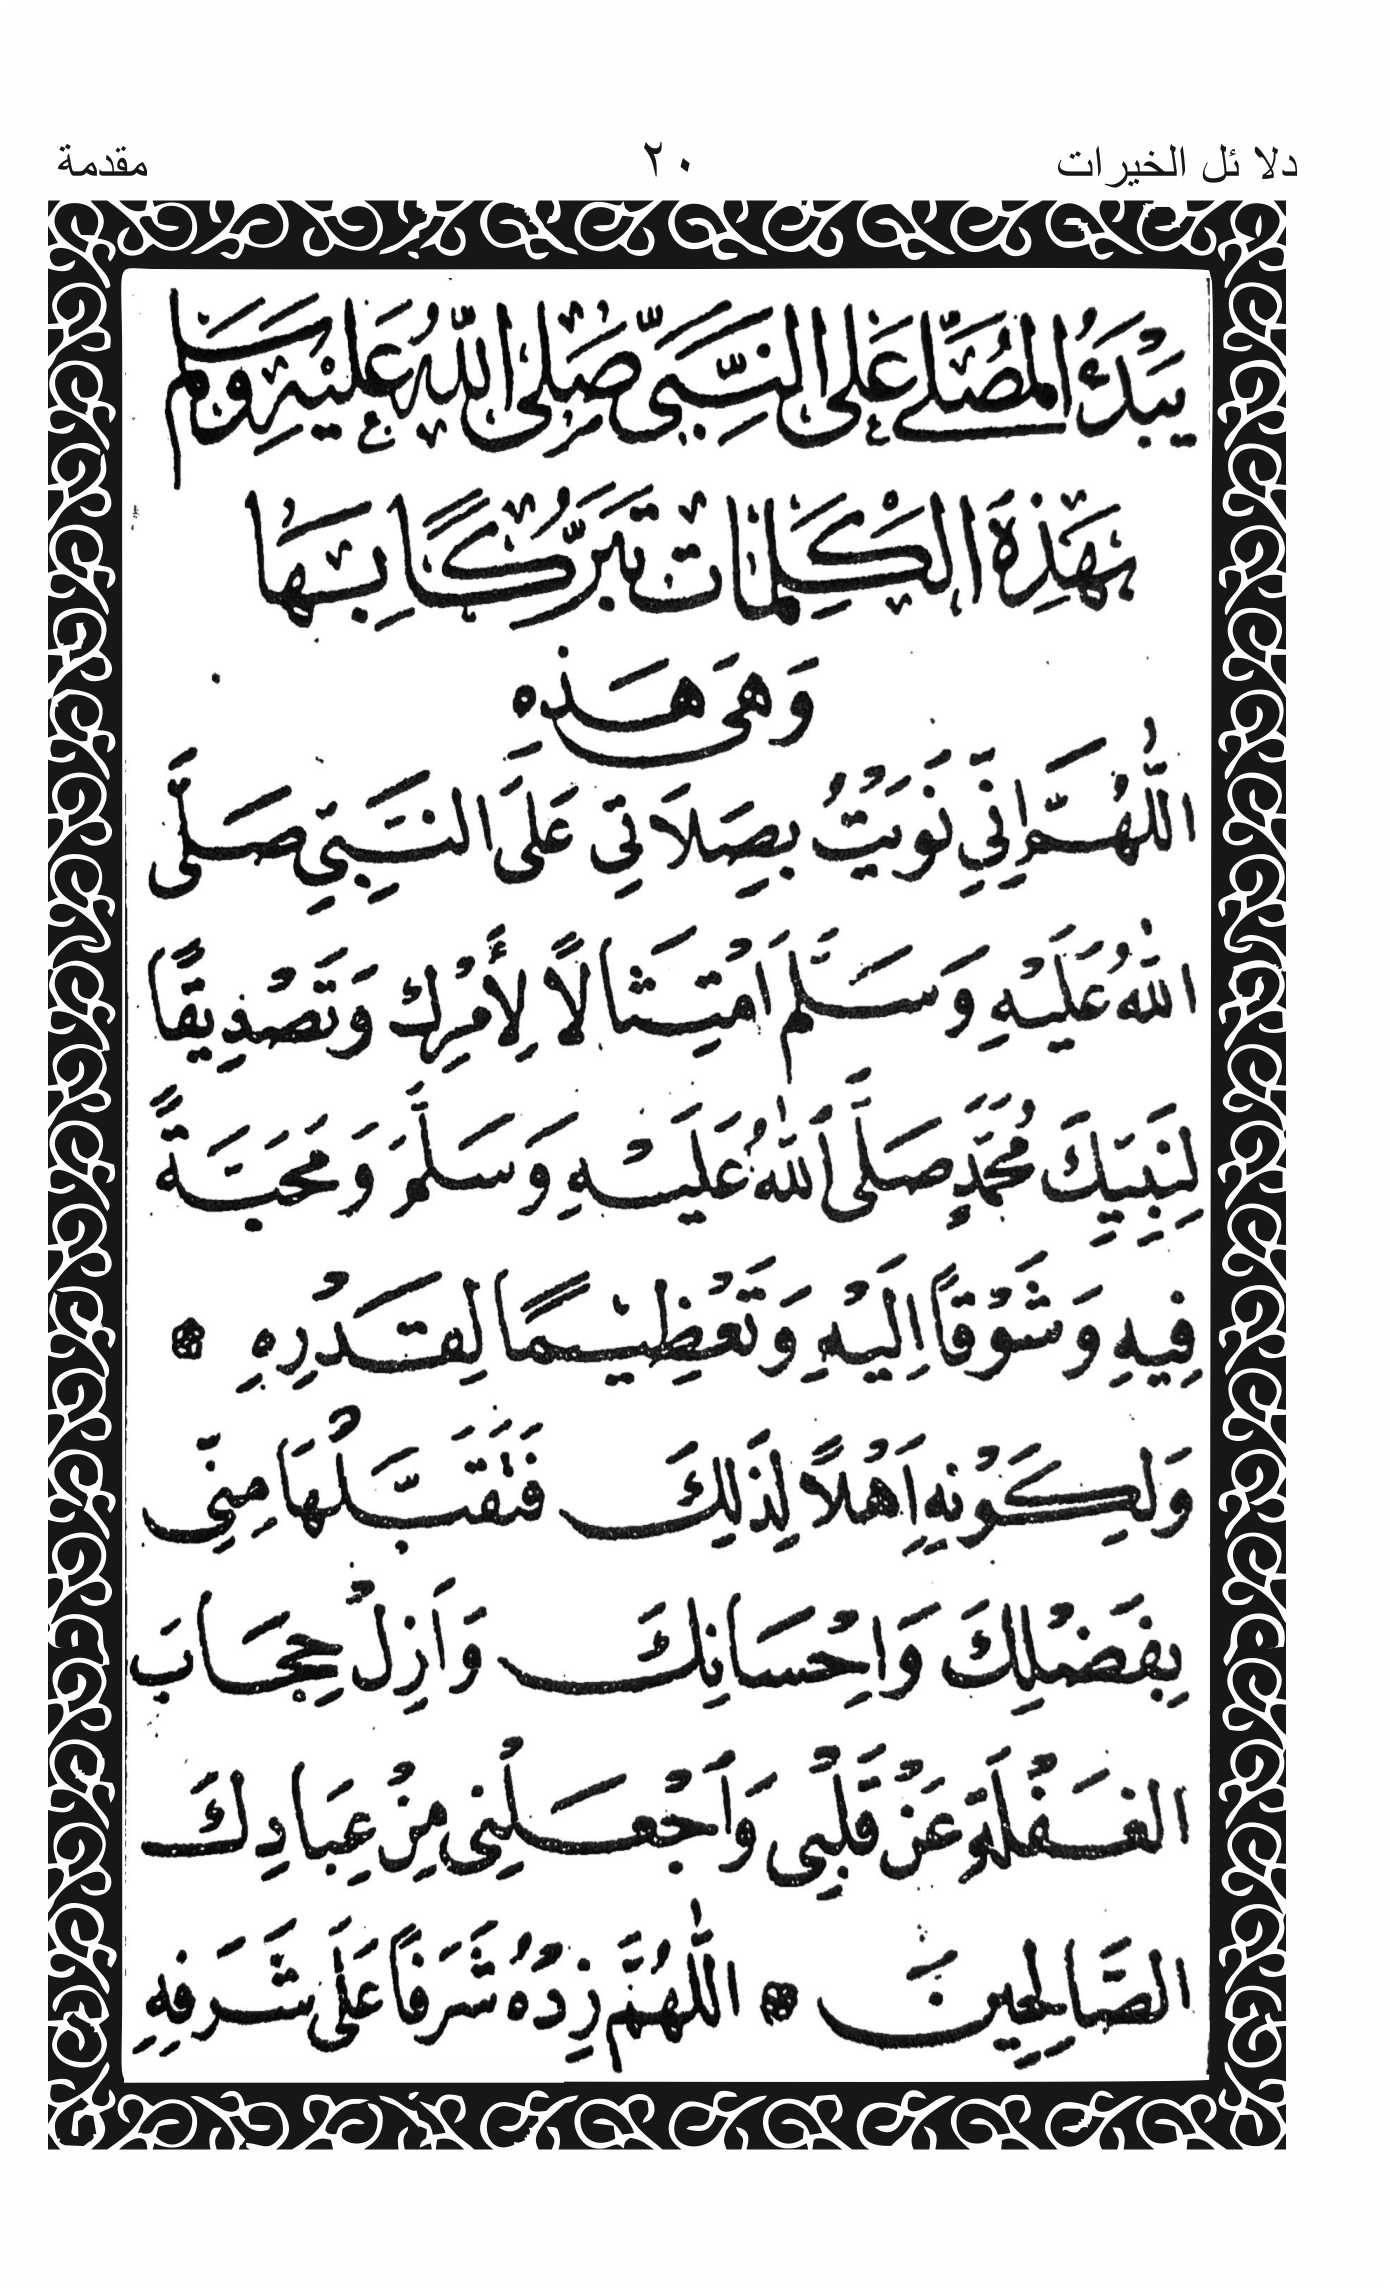 دلائل الخيرات ٢٠ مقدمة
يَبْدَءُ الْمُصَلِّي عَلَى النَّبِيِّ صَلَّى اللهُ عَلَيْهِ وَسَلَّمَ
بِهَذِهِ الْكَلِمَاتِ تَبَرُّكًا بِهَا
وَهِيَ هَذِهِ
اَللّٰهُمَّ اِنِّي نَوَيْتُ بِصَلَاتِي عَلَى النَّبِيِّ صَلَّى
اللهُ عَلَيْهِ وَسَلَّمَ اَمْتِثَالًا لِأَمْرِكَ وَتَصْدِيقًا
لِنَبِيِّكَ مُحَمَّدٍ صَلَّى اللهُ عَلَيْهِ وَسَلَّمَ وَمَحَبَّةً
فِيهِ وَشَوْقًا اِلَيْهِ وَتَعْظِيمًا لِقَدْرِهِ
وَلِكَوْنِهِ اَهْلًا لِذَلِكَ فَتَقَبَّلْهَا مِنِّي
بِفَضْلِكَ وَاِحْسَانِكَ وَاَزِلْ حِجَابَ
الْغَفْلَةِ عَنْ قَلْبِي وَاَجْعَلْنِي مِنْ عِبَادِكَ
الصَّالِحِينَ اَللّٰهُمَّ زِدْهُ شَرَفًا عَلَى شَرَفِهِ